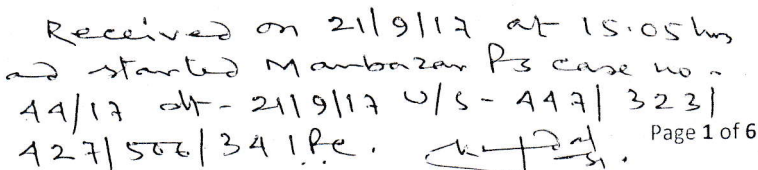 Received on 21/9/17 at 15.05 hrs
and started Manbazar PS case no -
44/17 dt - 21/9/17 U/S - 447/323/
427/506/34 IPC.
Page 1 of 6